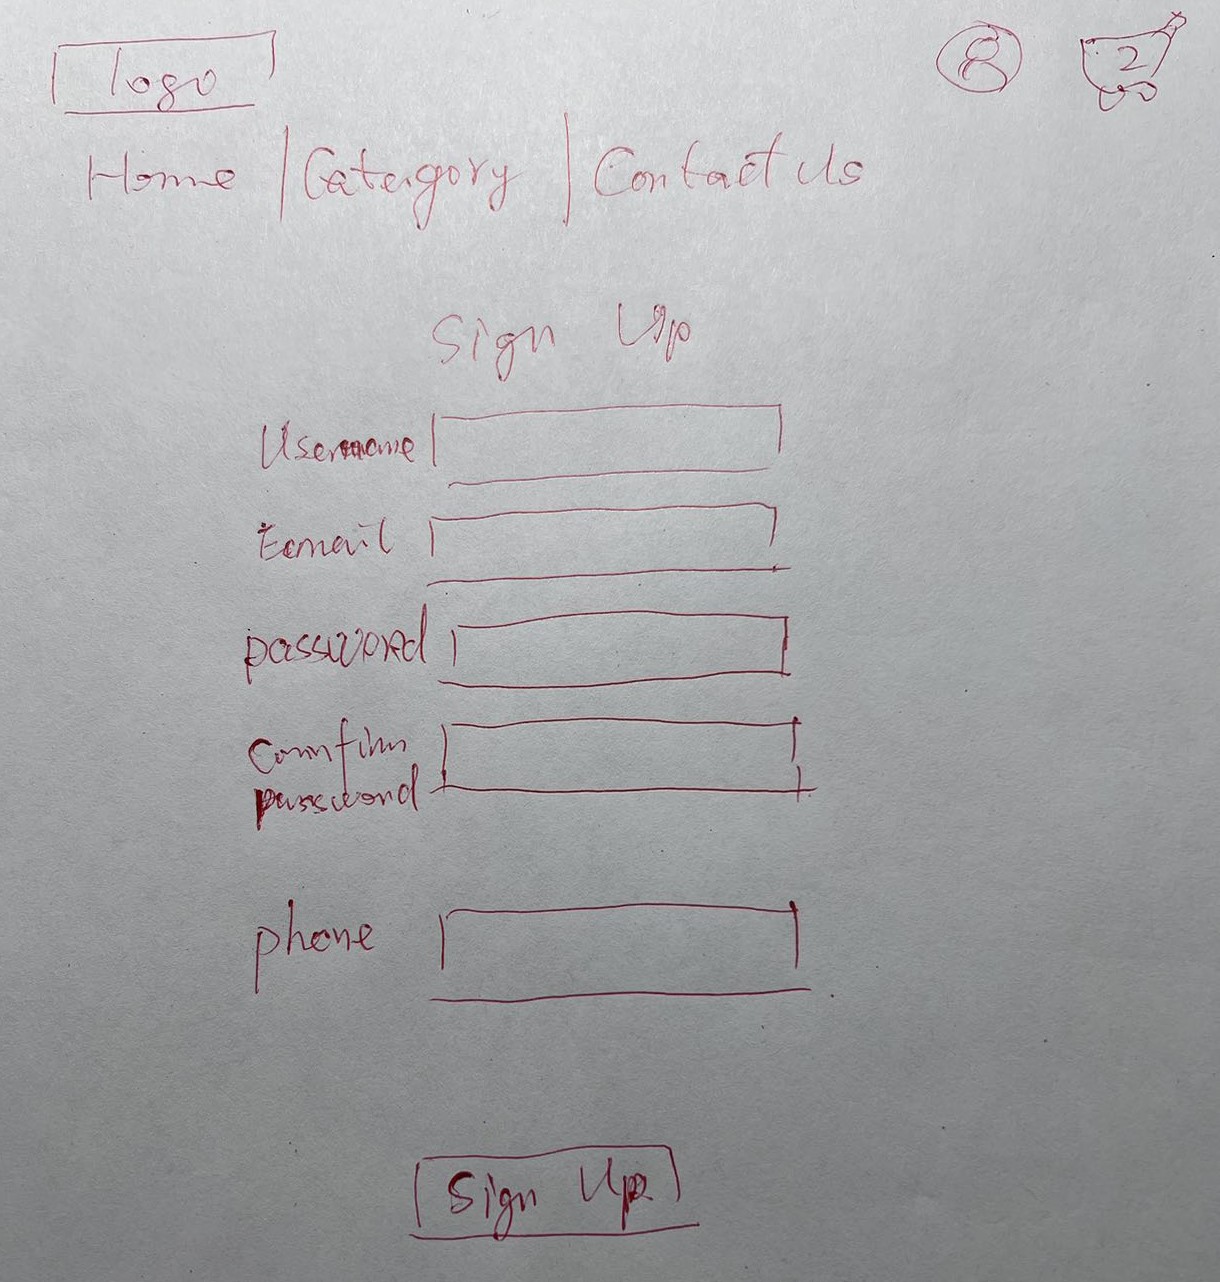 logo
2
Home | Catergory | Contact Us
Sign Up
Username
Email
password
Confirm
password
phone
Sign Up